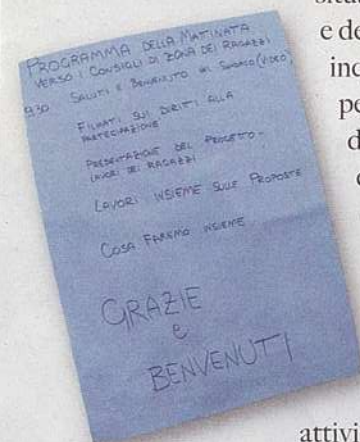 PROGRAMMA DELLA MATTINATA
VERSO I CONSIGLI DI ZONA DEI RAGAZZI
9.30 SALUTI E BENVENUTO DEL SINDACO (VIDEO)
FILMATI SUI DIRITTI ALLA
PARTECIPAZIONE
PRESENTAZIONE DEL PROGETTO -
LAVORI DEI RAGAZZI
LAVORI INSIEME SULLE PROPOSTE
COSA FAREMO INSIEME
GRAZIE
e
BENVENUTI
e de
attivi